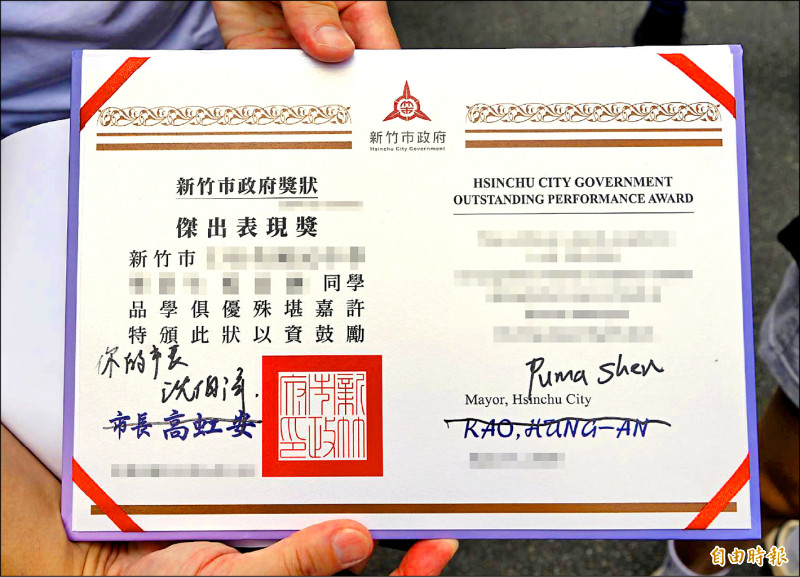 新竹市政府
Hsinchu City Government
新竹市政府獎狀
傑出表現獎
新竹市
同學
品學俱優殊堪嘉許
特頒此狀以資鼓勵
你的市長
沈伯洋
市長 高虹安
新竹市政府印
HSINCHU CITY GOVERNMENT
OUTSTANDING PERFORMANCE AWARD
Puma Shen
Mayor, Hsinchu City
KAO, HUNG-AN
自由時報